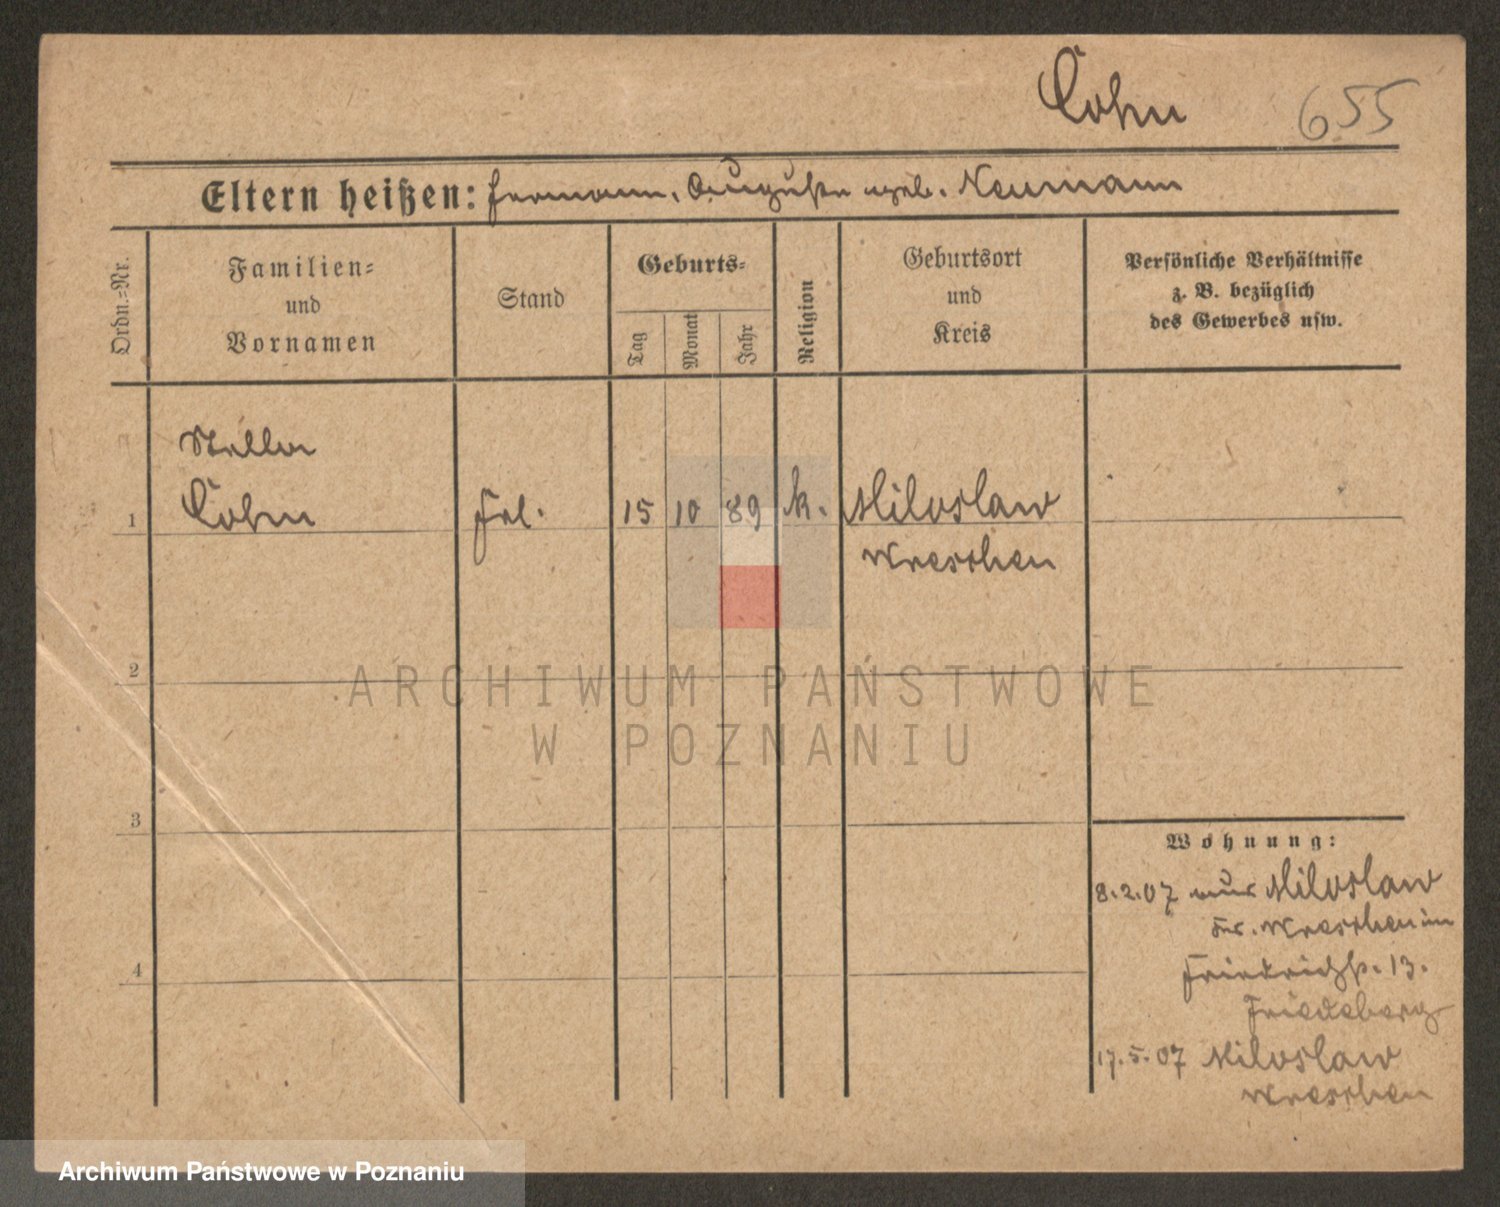 Cohn 655
Eltern heißen: Hermann, Auguste geb. Neumann
Ordn.=Nr.
Familien=
und
Vornamen
Stand
Geburts=
Tag
Monat
Jahr
Religion
Geburtsort
und
Kreis
Persönliche Verhältnisse
z. B. bezüglich
des Gewerbes usw.
Stella
1 Cohn Frl. 15 10 89 Miloslaw
Wreschen
2
3
4
Wohnung:
8.2.07 aus Miloslaw
Kr. Wreschen in
Friedrichst. 13.
Friedeberg
17.5.07 Miloslaw
Wreschen
ARCHIWUM PAŃSTWOWE
W POZNANIU
Archiwum Państwowe w Poznaniu